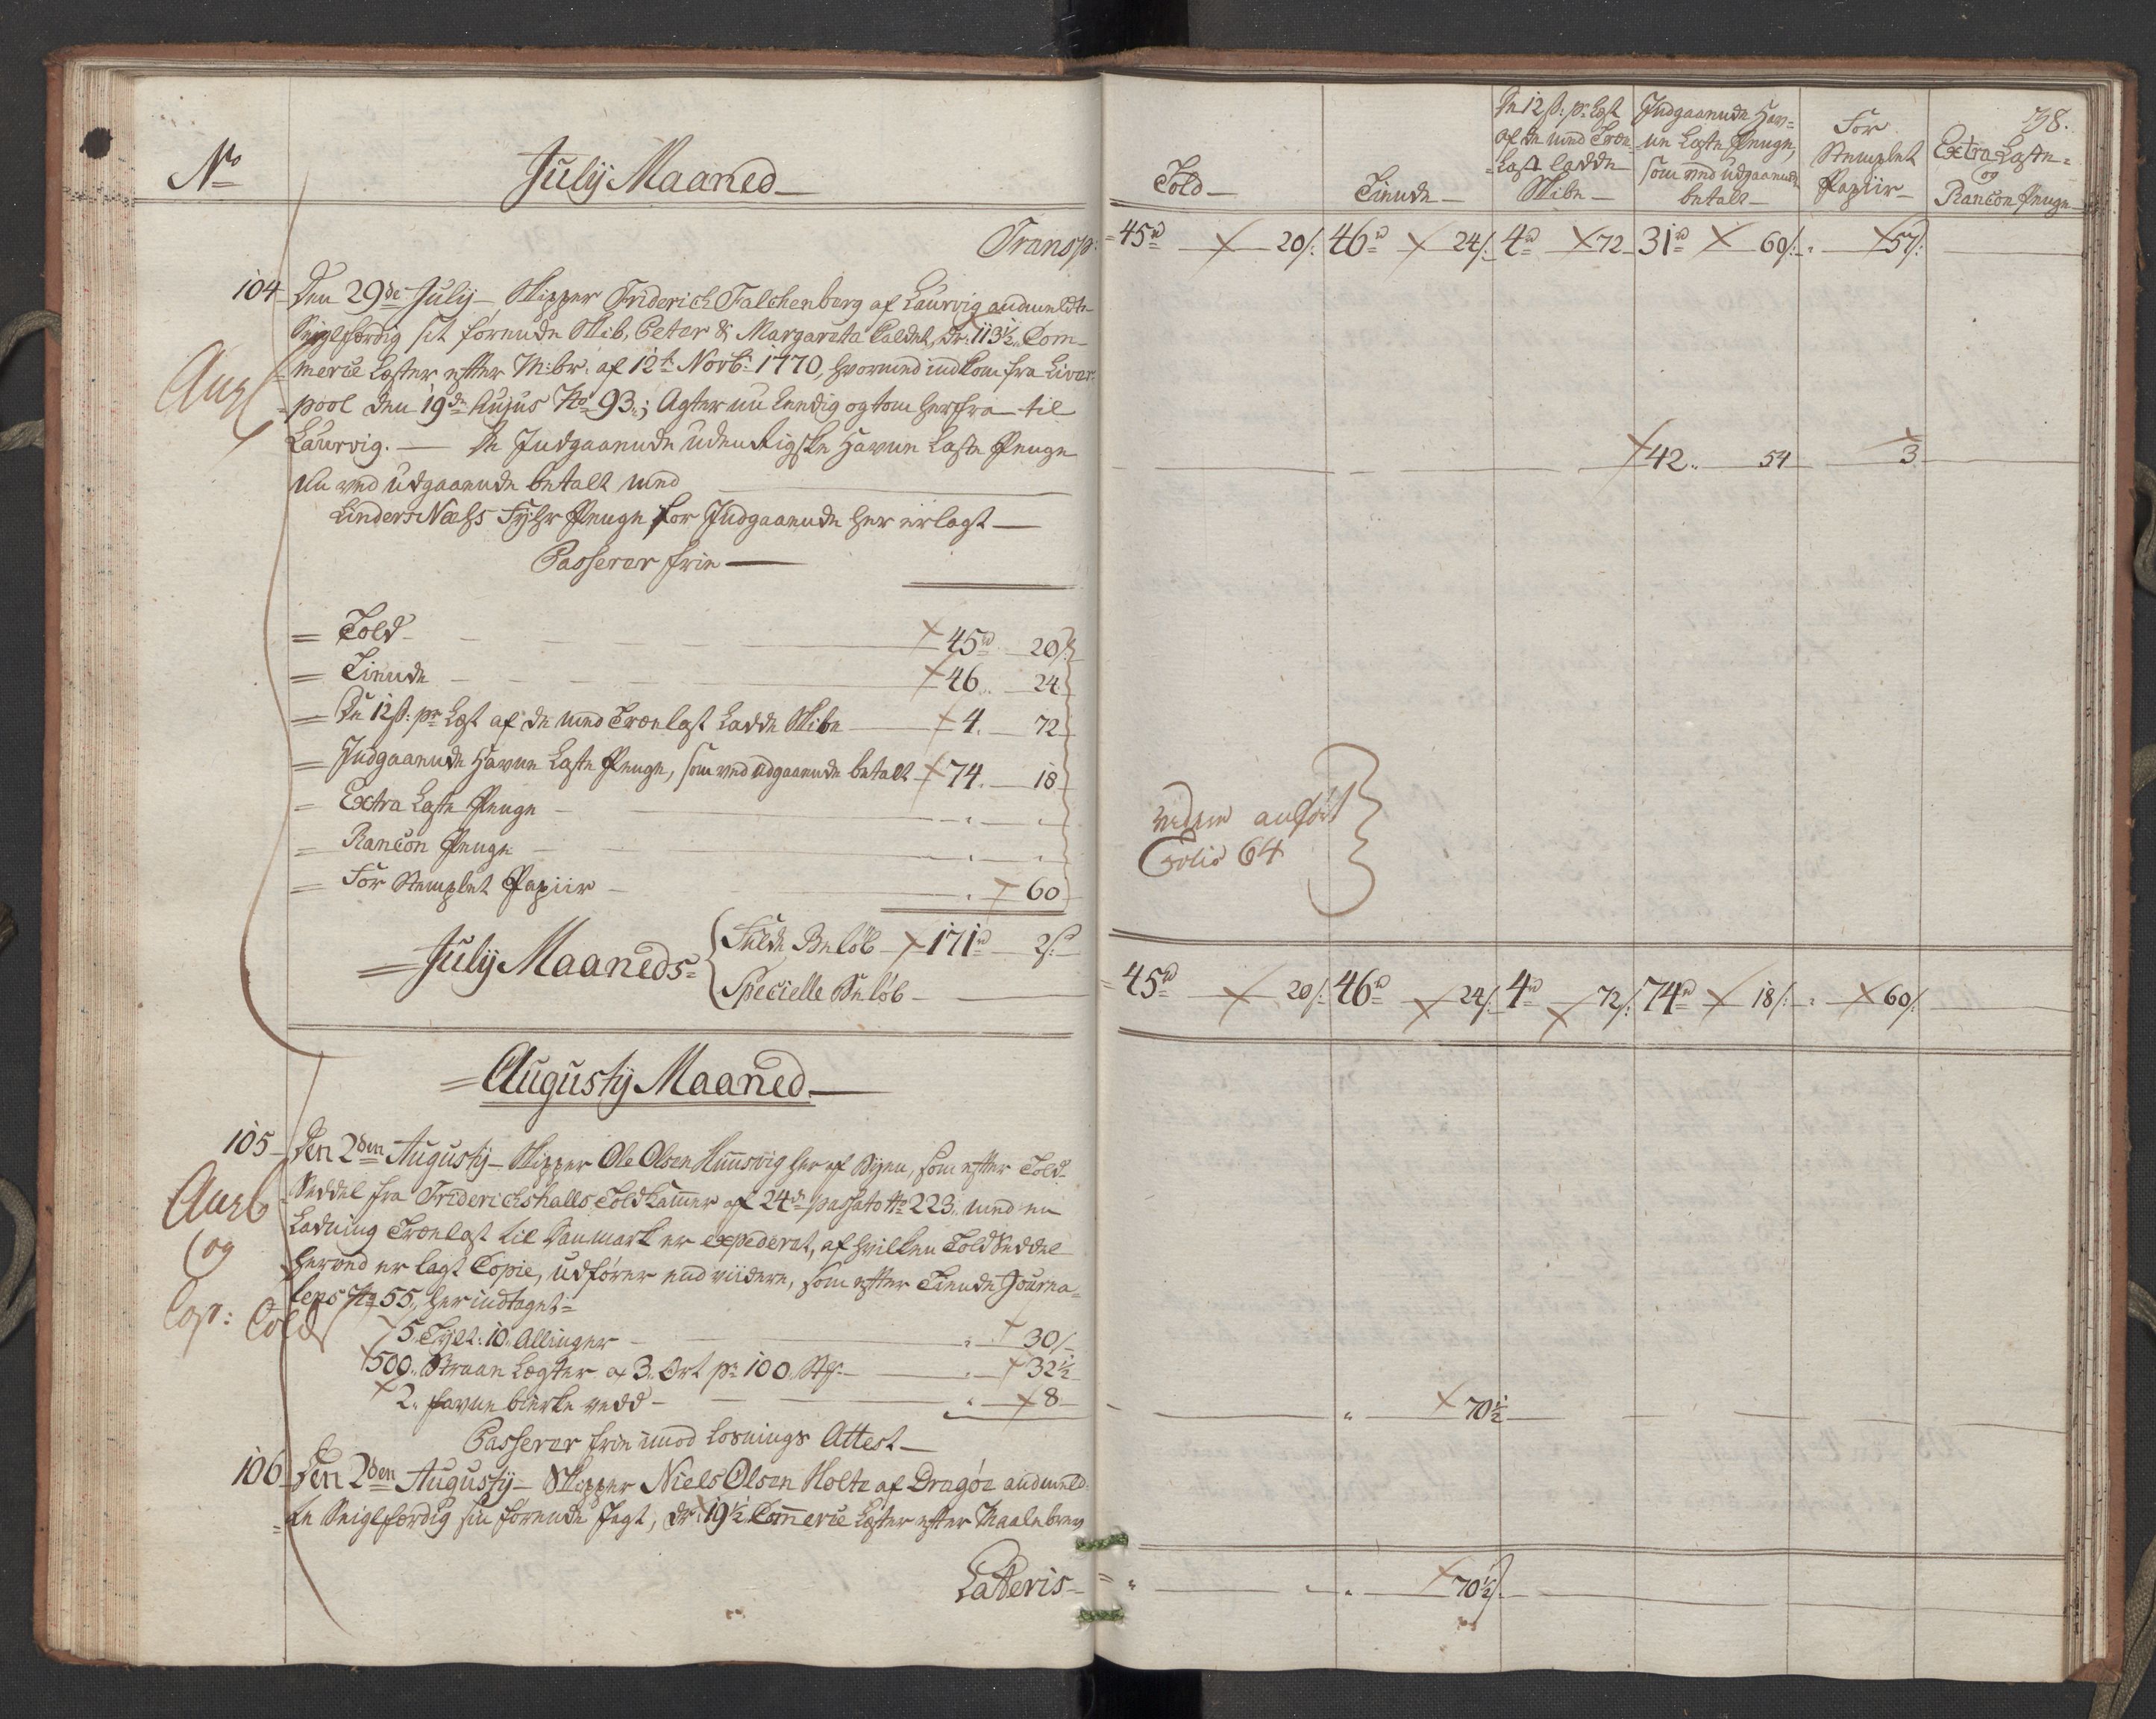 No
July Maaned
Transp:
104 Den 29de July Skipper Friderich Falchenberg af Laurvig andmeldte
Seiglfærdig sit førende Skib, Peter & Margareta Kaldet, dr: 113½ Com-
mercie Læster efter M:br: af 12t Novb: 1770, hvormed indkom fra Liver-
pool den 19de hujus No 93; Agter nu Leedig og tom herfra til
Laurvig. — De Indgaaende Udenrigske Havne Laste Penge
nu ved Udgaaende betalt med
Linders Næhs Fyhr Penge for Indgaaende her erlagt
Passerer frie
= Told 45rd 20s
= Tiende 46 24
= De 12s: pr Læst af de med Trælast Ladde Skibe 4. 72
= Indgaaende Havne Laste Penge, som ved udgaaende betalt 74. 18
= Extra Laste Penge
= Rancon Penge
= For Stemplet Papiir 60
= July Maaneds
Fulde Beløb 171rd 2s
Specielle Beløb
= Augusty Maaned
105 Den 2den Augusty Skipper Ole Olsen her af Byen, som efter Told-
Seddel fra Friderichshalls Toldkammer af 24de passato No 223 med en
Ladning Trælast til Danmark er expederet, af hvilken Told Seddel
herved er lagt Copie, udfører end viidere, som efter Tiende Journa-
lens No 55, her indtaget
og
5 Tylt: 10 Allinger 30s
500 Straae Lægter a 3 Ort pr 100 St: 32½
2 favne birke vedd 8
Passerer frie imod Losnings Attest
106 Den 2den Augusty Skipper Niels Olsen Holte af Dragøe andmeld-
te Seiglfærdig sin førende Jagt, dr: 19½ Commercie Læster efter Maalebrev
Latteris
78.
Told
Tiende
De 12s: pr Læst af de med Træ-Last ladde Skibe
Indgaaende Hav-ne Laste Penge, som ved udgaaende betalt
For Stemplet Papiir
Extra Laste- og Rancon Penge
45rd 20s 46rd 24s 4rd 72 31rd 60s 57s
42 54 3
Folio 64
45rd 20s 46rd 24s 4rd 72s 74rd 18s 60s
70½
70½s